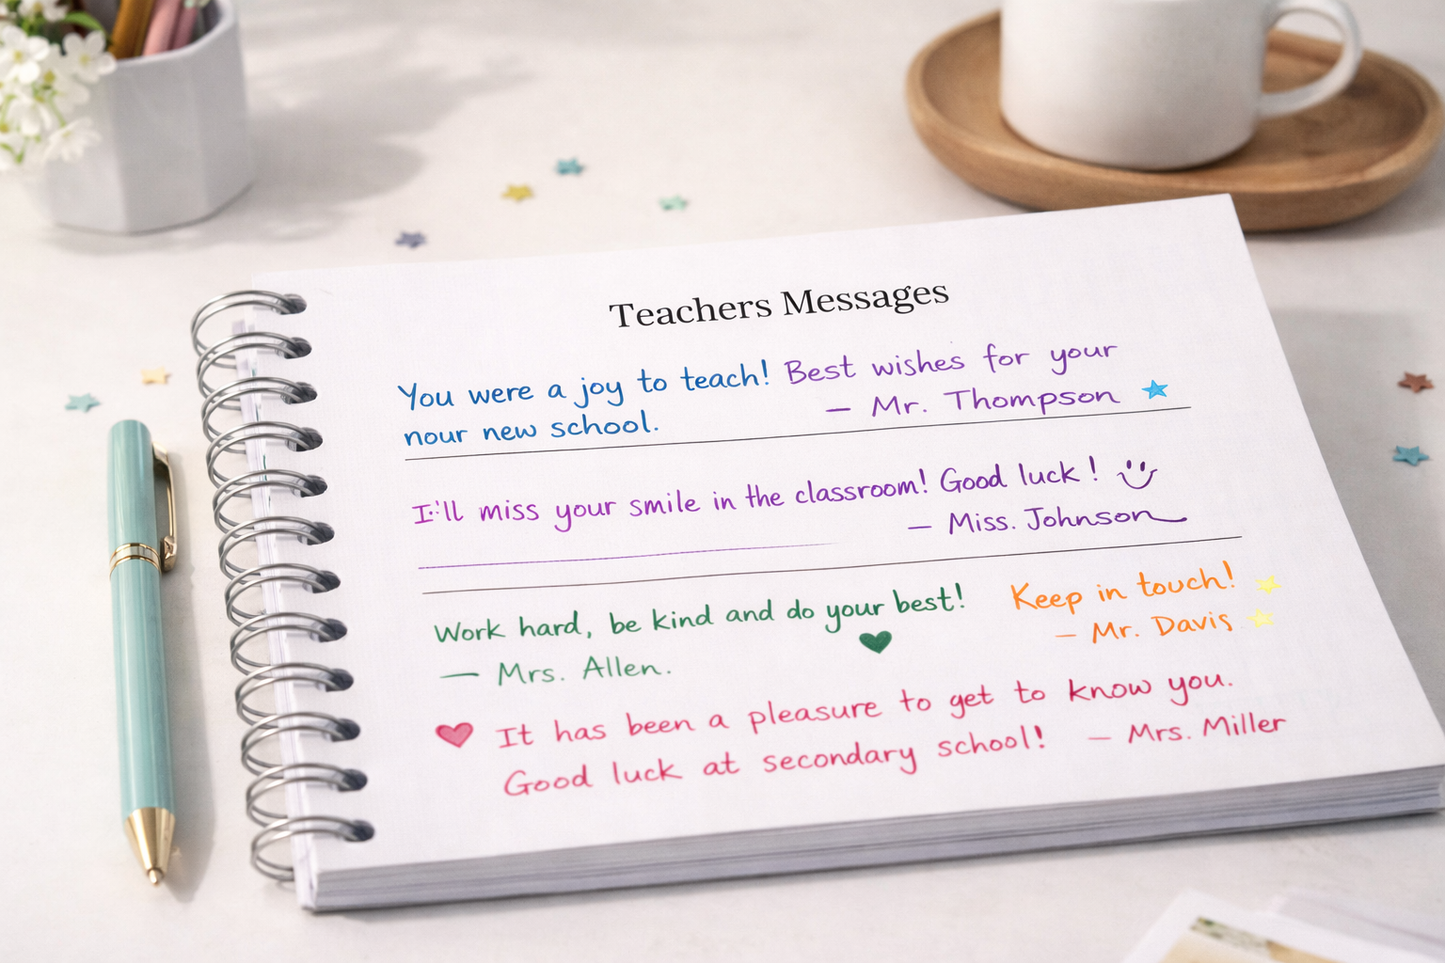 Teachers Messages
You were a joy to teach! Best wishes for your
nour new school. — Mr. Thompson
I'll miss your smile in the classroom! Good luck!
— Miss. Johnson
Work hard, be kind and do your best! Keep in touch!
— Mrs. Allen. — Mr. Davis
It has been a pleasure to get to know you.
Good luck at secondary school! — Mrs. Miller